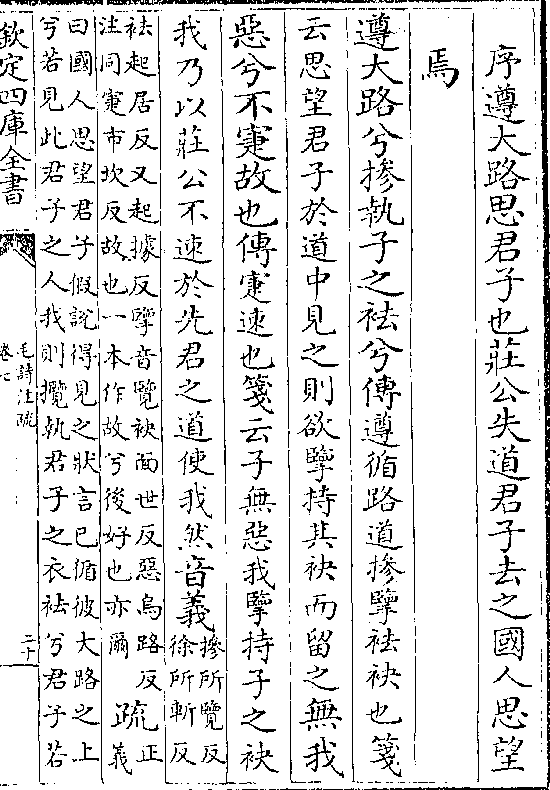 序遵大路思君子也莊公失道君子去之國人思望
焉
遵大路兮摻執子之袪兮傳遵循路道摻擥袪袂也箋
云思望君子於道中見之則欲擥持其袂而留之無我
惡兮不寁故也傳寁速也箋云子無惡我擥持子之袂
我乃以莊公不速於先君之道使我然音義
摻所覽反
徐所斬反
袪起居反又起據反擥音覽袂面世反惡烏路反
注同寁市坎反故也一本作故兮後好也亦爾
疏
正
義
曰國人思望君子假說得見之狀言已循彼大路之上
兮若見此君子之人我則攬執君子之衣袪兮君子若
欽定四庫全書
毛詩注疏
卷七
二十